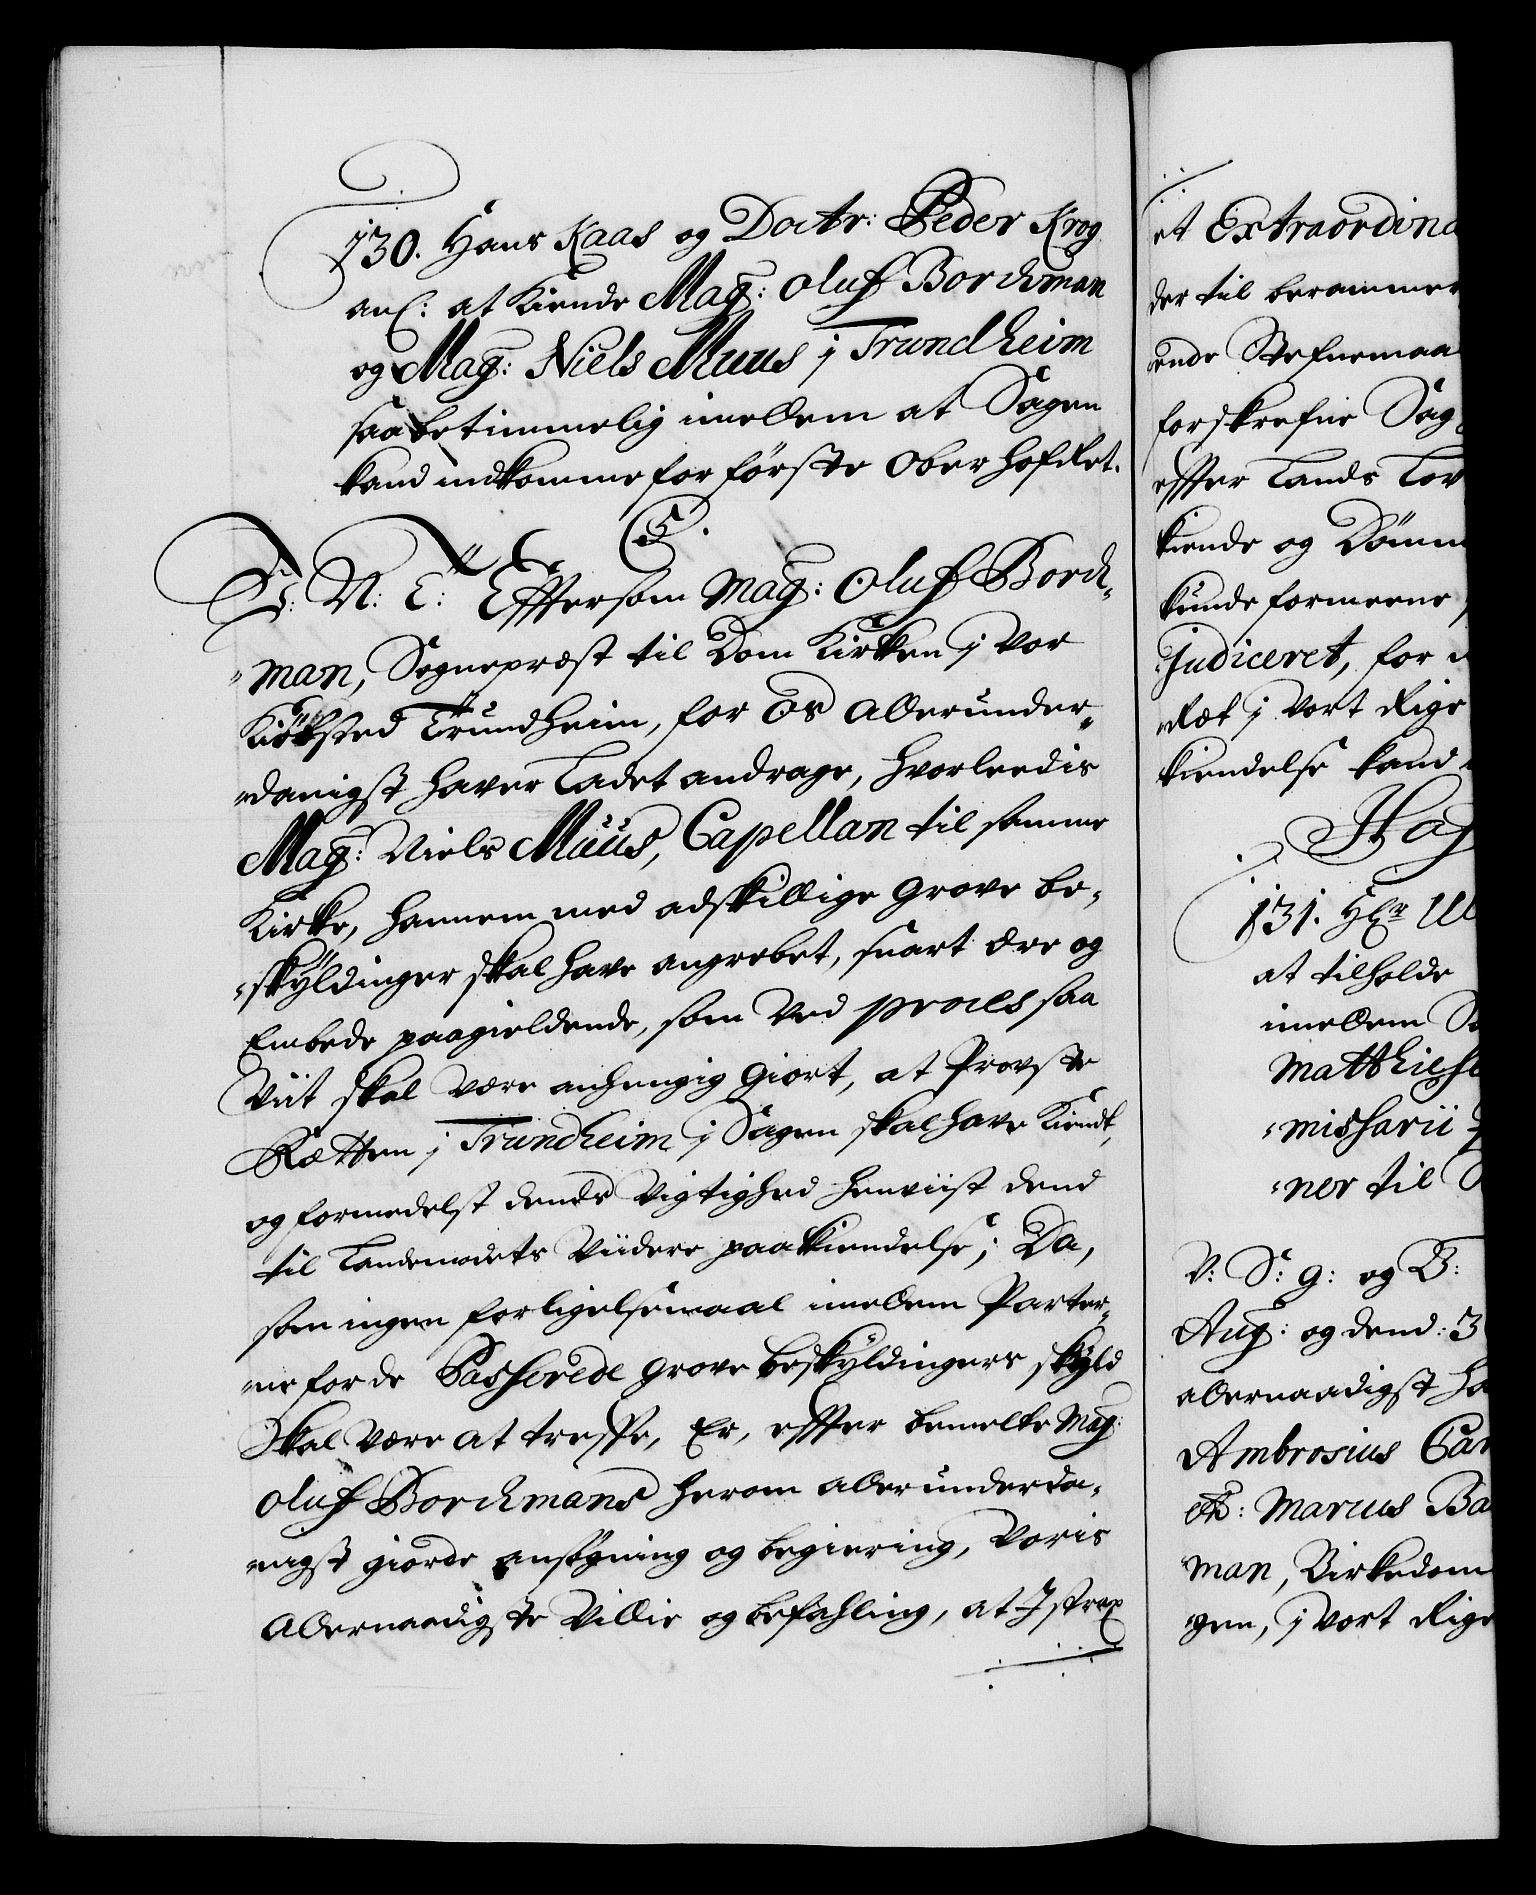 130. Hans Kaas og Doctr: Peder Krog
anl: at Kiende Mag: Oluf Borchman
og Mag: Niels Muus j Trundheim
saa betimmelig imellem at Sagen
kand indkomme for første Ober Hof Ret.
C5.
G: N: T: Efftersom Mag: Oluf Borch-
"man, Sognepræst til Dom Kirken j Vor
Kiøbsted Trundheim, for Os Allerunder-
"danigst haver ladet andrage, hvorleedis
Mag: Niels Muus, Capellan til samme
Kirke, hannem med adskillige grove be-
"skyldinger skal have angrebet, snart ære og
Embede paagieldende, som ved proces saa
Viit skal være anhengig giort, at Provste
Rætten j Trundheim j Sagen skal have Kiendt,
og formedelst dends Vigtighed henviist dend
til Landemodets Viidere paakiendelse; Da,
som ingen forligelsemaal imellem Parter-
"ne for de Passerede grove beskyldingers skyld
skal være at treffe, Er, effter bemelte Mag:
Oluf Borchmans herom allerunderda-
"nigst giorde ansøgning og begiering, Voris
Allernaadigste Villie og befahling, at I strax
et Extraordina
der til berammer
ende Stefnemaa
forskrefne Sag
effter Lands Lov
kiende og Dømm
kunde formeene
judiceret, for
Ræt j Vort Rige
kiendelse kand
Haf
131. HEr Ul
at tilholde
imellem S
Matthiese
"missarii
"ner til
V: S: g: og B:
Aug: og dend: 3
allernaadigst ha
Ambrosius Car
et: Marcus Ba
man, Birkedom
"gen, j Vort Rige